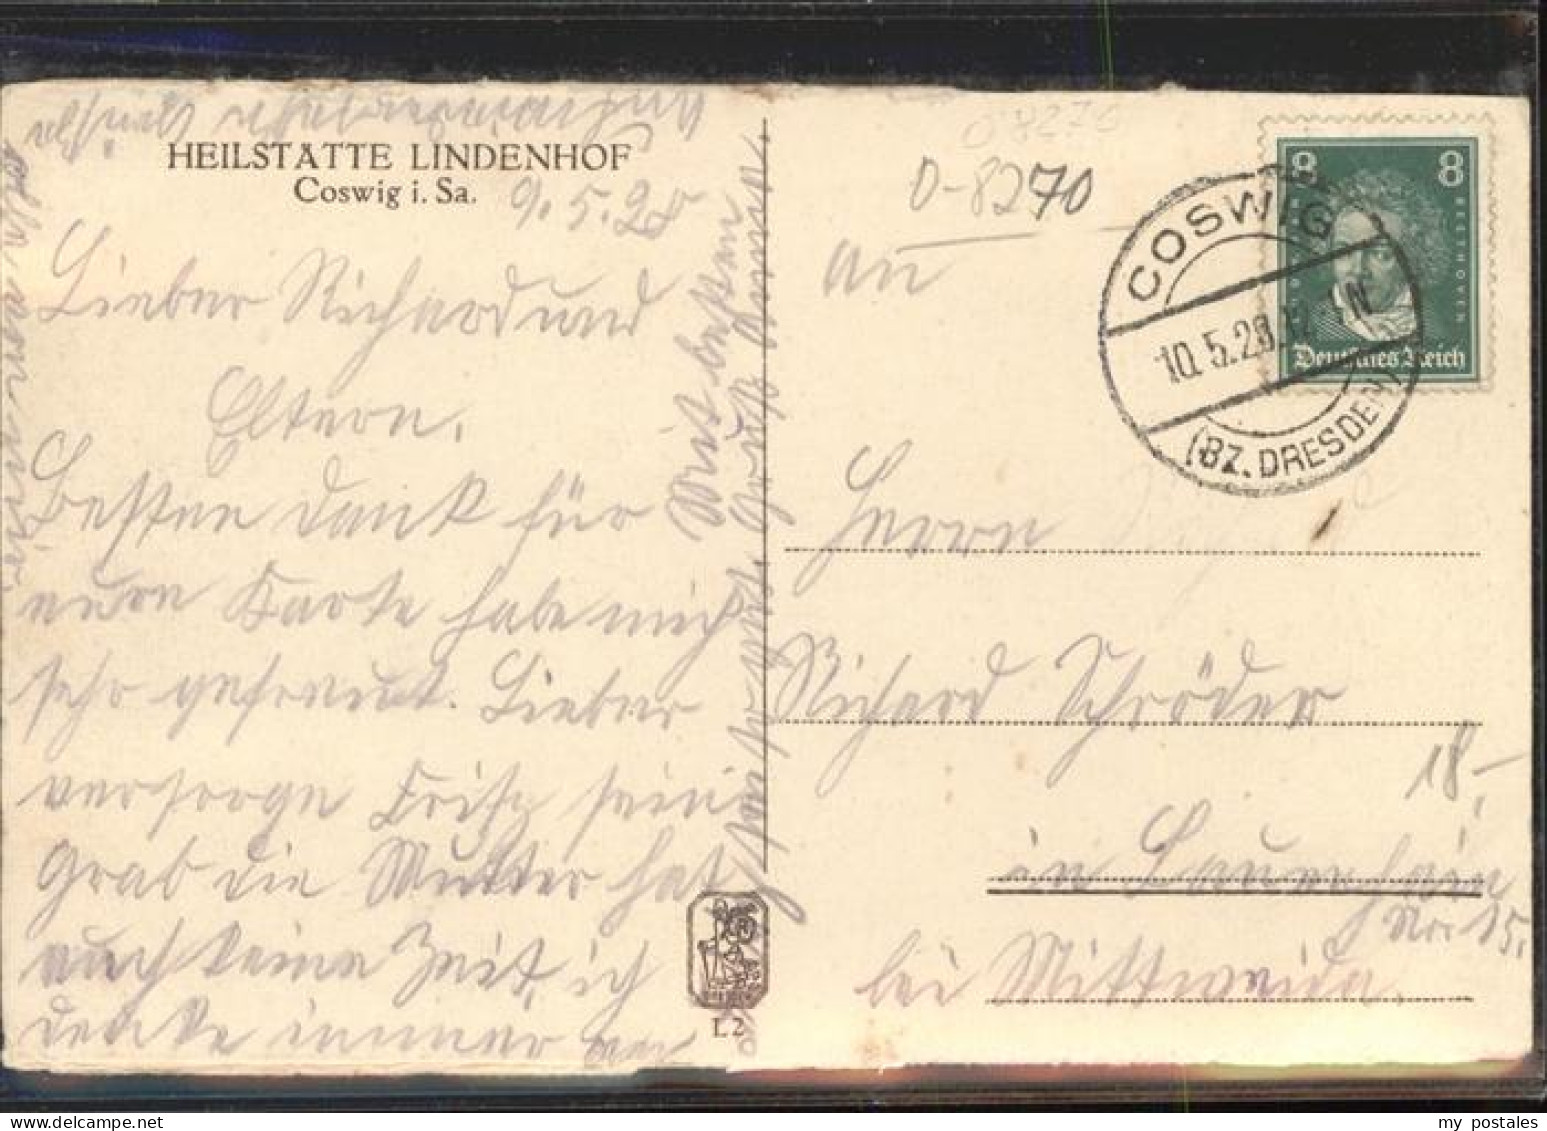 HEILSTÄTTE LINDENHOF
Coswig i. Sa.
9. 5. 28
Lieber Richard und
Eltern.
Besten Dank für
eure Karte habe mich
sehr gefreut. Lieber
versorge Fritz sein
Grab die Mutter hat
auch keine Zeit, ich
denke immer
Mit besten
Gruß
L2
D-8270
D-8270
An
COSWIG
10.5.28.
(BZ. DRESDEN)
8 8
BEETHOVEN
Deutsches Reich
Herrn
Richard Schröder
18,-
in Lauenhain
Nr. 15.
bei Mittweida.
my postales